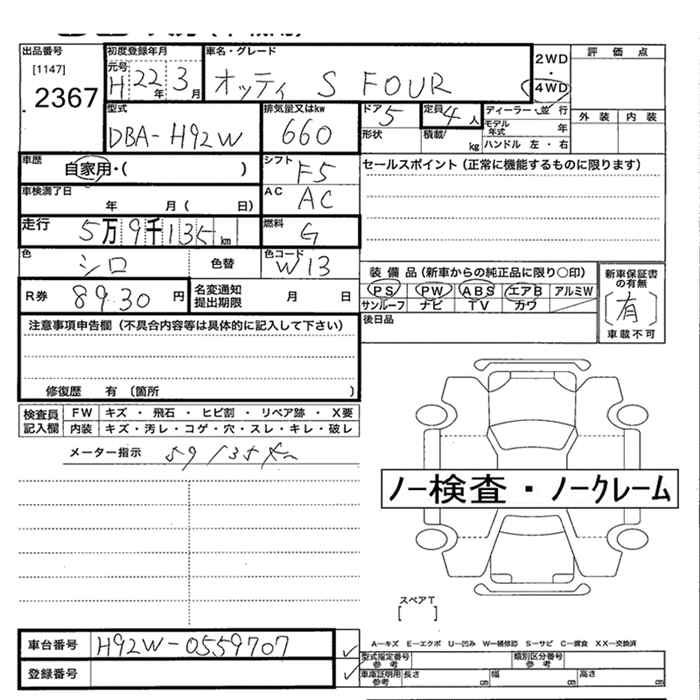 出品番号
[1147]
2367
初度登録年月
元号
H 22年 3月
車名・グレード
オッティ S FOUR
2WD
・
4WD
評価点
外装 内装
型式
DBA-H92W
排気量又はkw
660
ドア
5
形状
定員
4人
積載/
kg
ディーラー・並行
モデル年式 年
ハンドル 左・右
車歴
自家用・( )
シフト
F5
セールスポイント (正常に機能するものに限ります)
車検満了日
年 月( 日)
AC
AC
走行
5万9千135km
燃料
G
色
シロ
色替
色コード
W13
装備品(新車からの純正品に限り○印)
PS PW ABS エアB アルミW
サンルーフ ナビ TV カワ
新車保証書の有無
[有]
車載不可
R券
8930円
名変通知
提出期限
月 日
後日品
注意事項申告欄 (不具合内容等は具体的に記入して下さい)
修復歴 有 (箇所 )
検査員記入欄
FW キズ・飛石・ヒビ割・リペア跡・X要
内装 キズ・汚レ・コゲ・穴・スレ・キレ・破レ
メーター指示
59135km
ノー検査・ノークレーム
スペアT
[ ]
車台番号
H92W-0559707
登録番号
A-キズ E-エクボ U-凹み W-補修跡 S-サビ C-腐食 XX-交換済
型式指定番号
参考
類別区分番号
参考
車庫証明用
参考
長さ cm 幅 cm 高さ cm